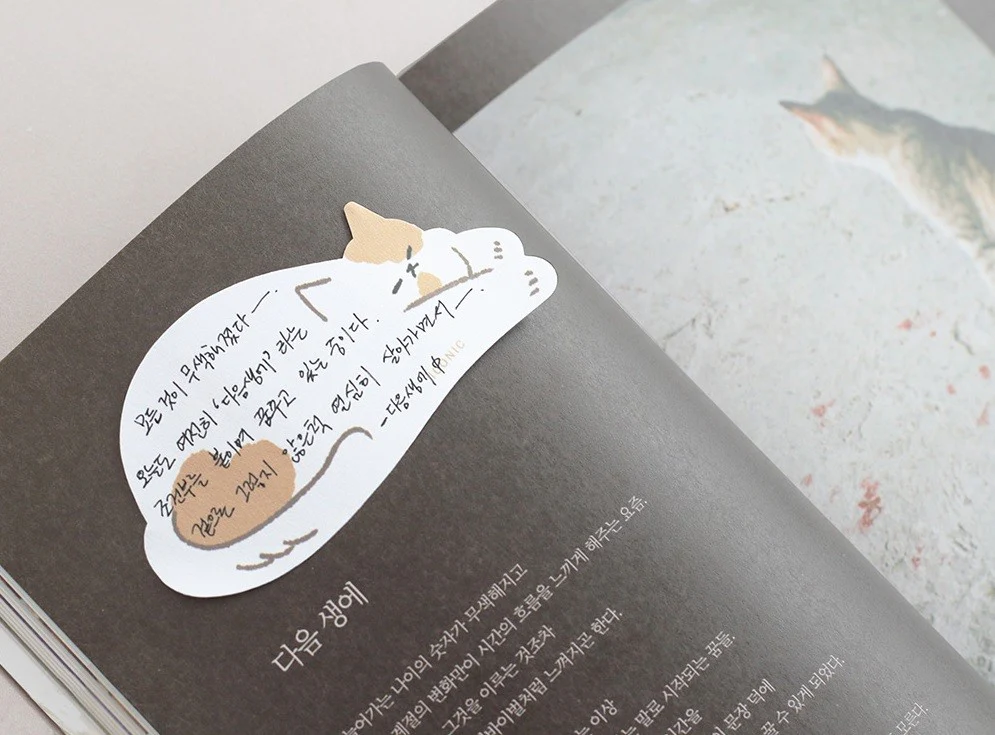 모든 것이 무색해졌다 —.
오늘도 여전히 '다음생에' 라는
조건부를 붙이며 꿈꾸고 있는 중이다.
겉으론 그렇지 않은척 열심히 살아가면서 —.
- 다음생에 中
ONIC
다음 생에
늘어가는 나이의 숫자가 무색해지고
계절의 변화만이 시간의 흐름을 느끼게 해주는 요즘.
그것을 이루는 것조차
바이벌처럼 느껴지곤 한다.
는 이상
는 말로 시작되는 꿈들.
시간을
이 문장 덕에
꿀 수 있게 되었다.
모른다.